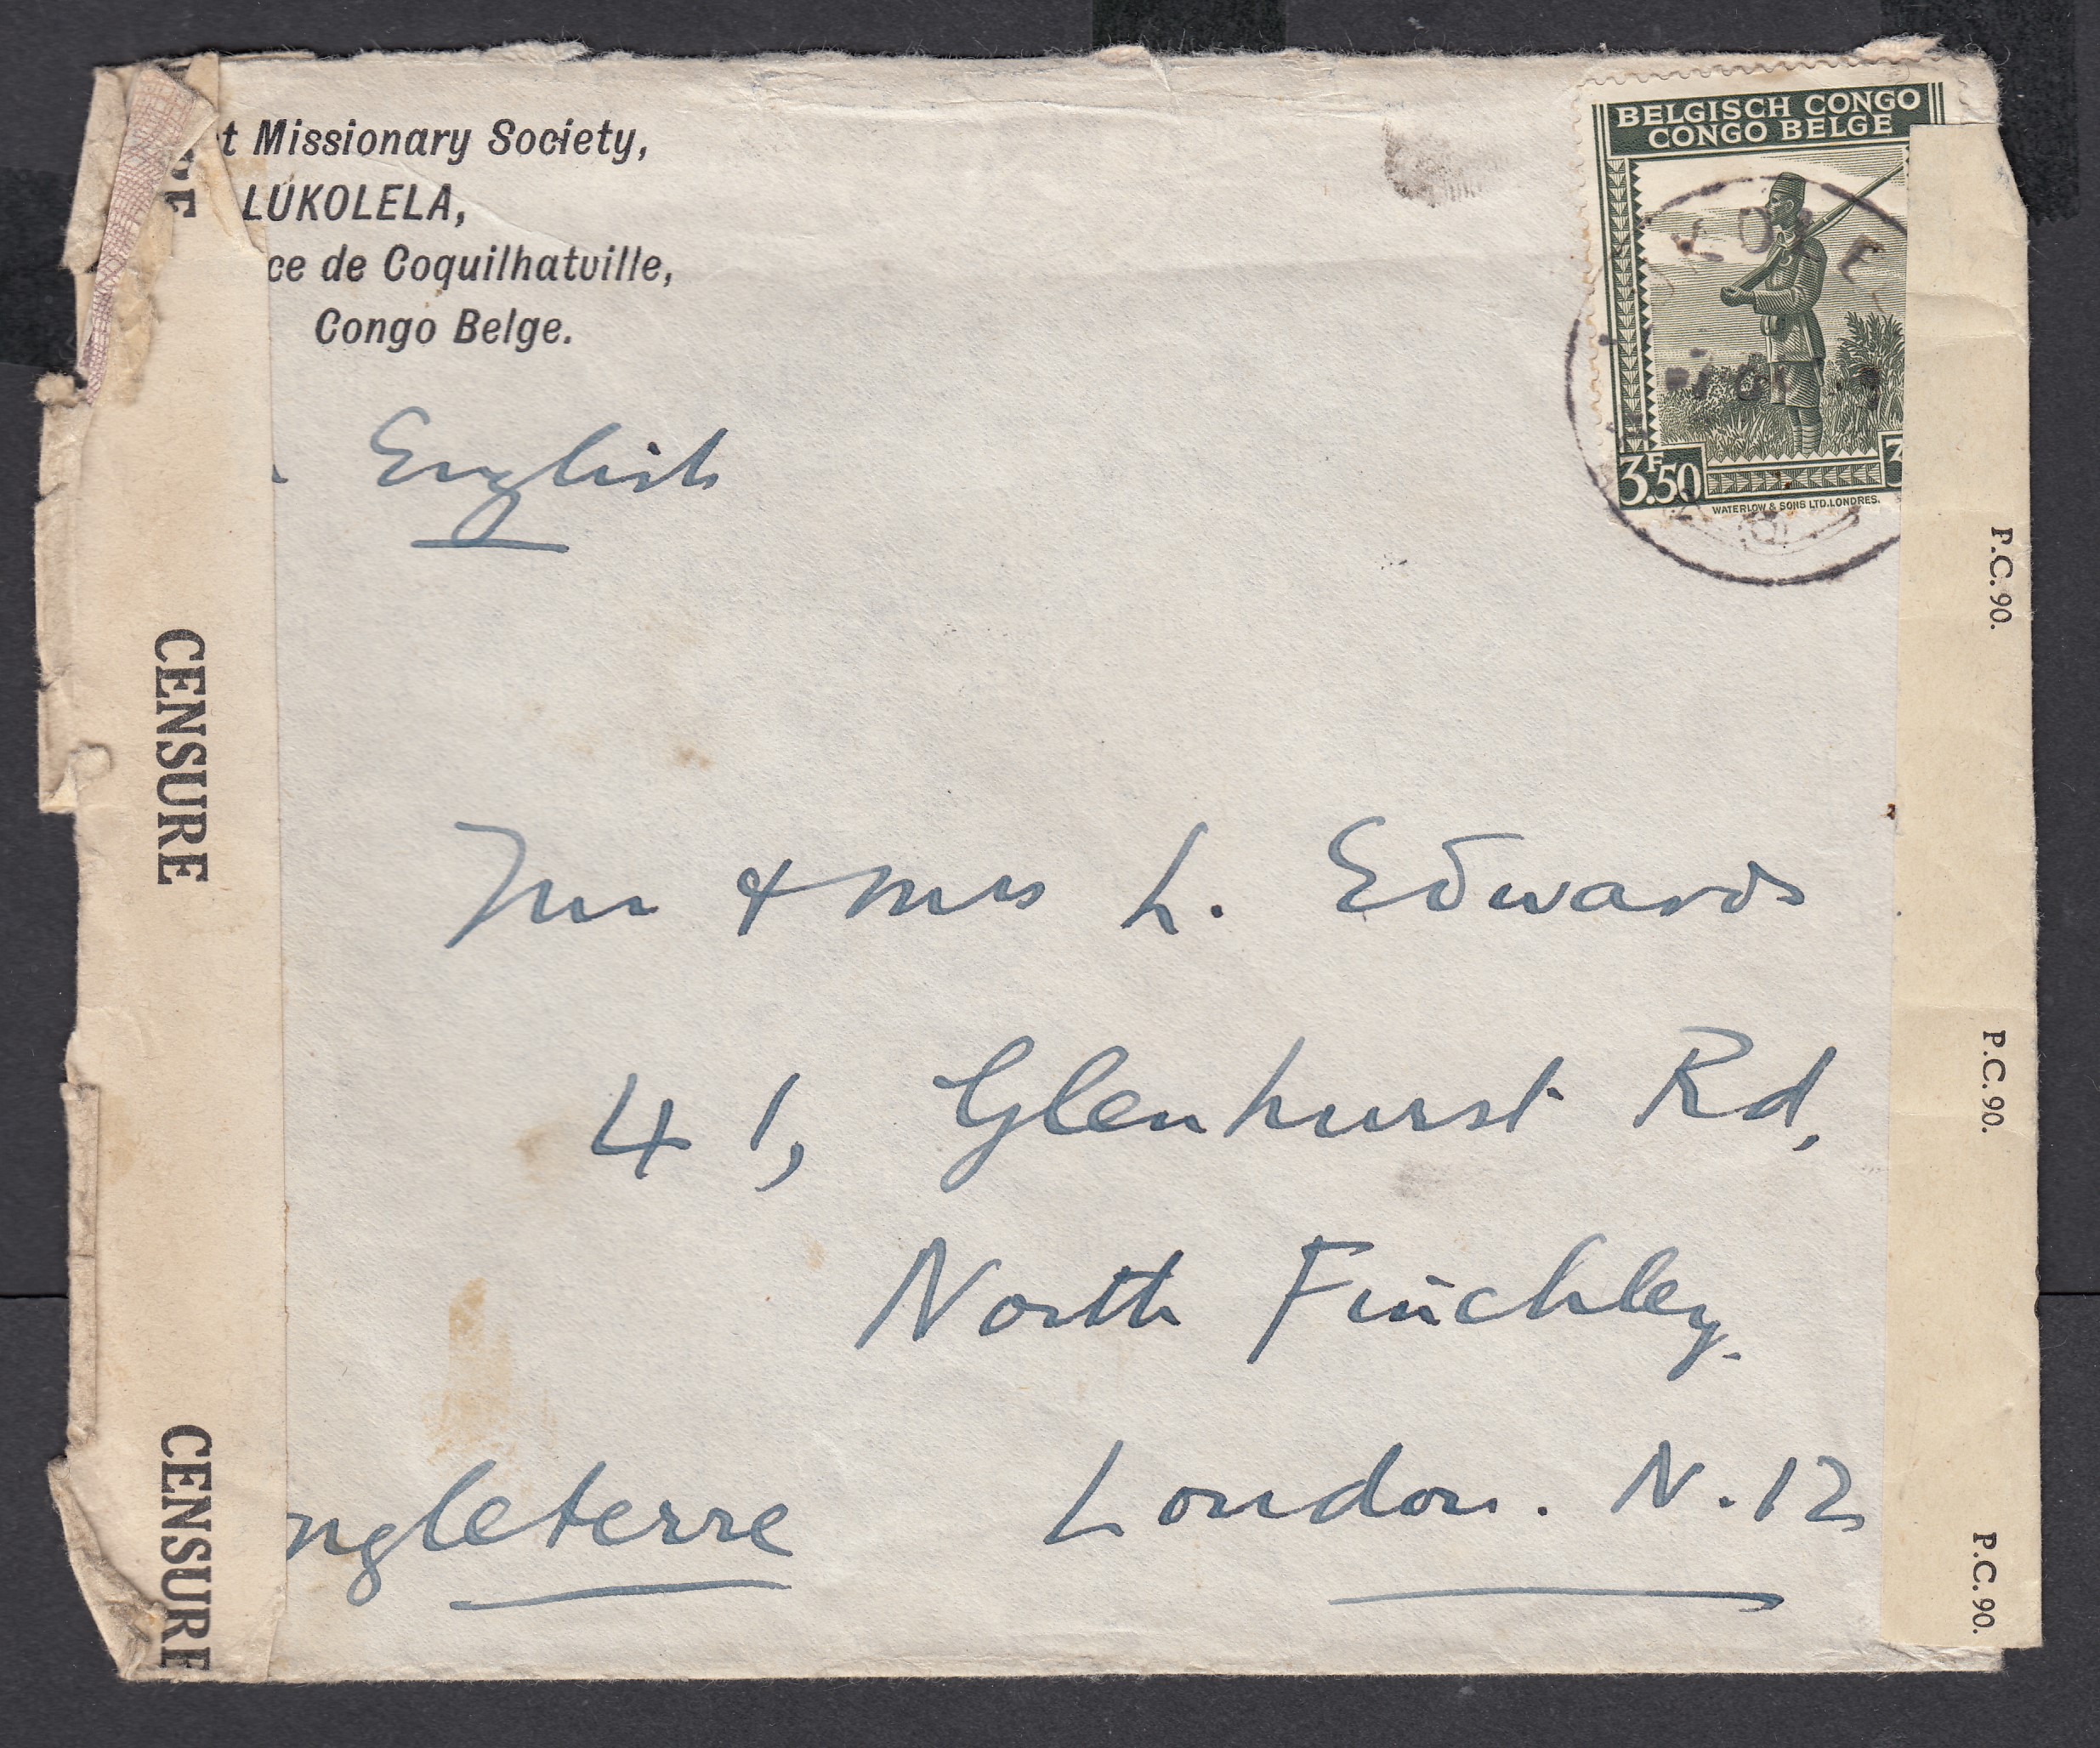 t Missionary Society,
LUKOLELA,
ce de Coquilhatville,
Congo Belge.
BELGISCH CONGO
CONGO BELGE
3F.50
3
WATERLOW & SONS LTD. LONDRES.
English
Mr & Mrs L. Edwards
41, Glenhurst Rd,
North Finchley.
London. N.12
ngleterre
CENSURE
CENSURE
P.C. 90.
P.C. 90.
P.C. 90.